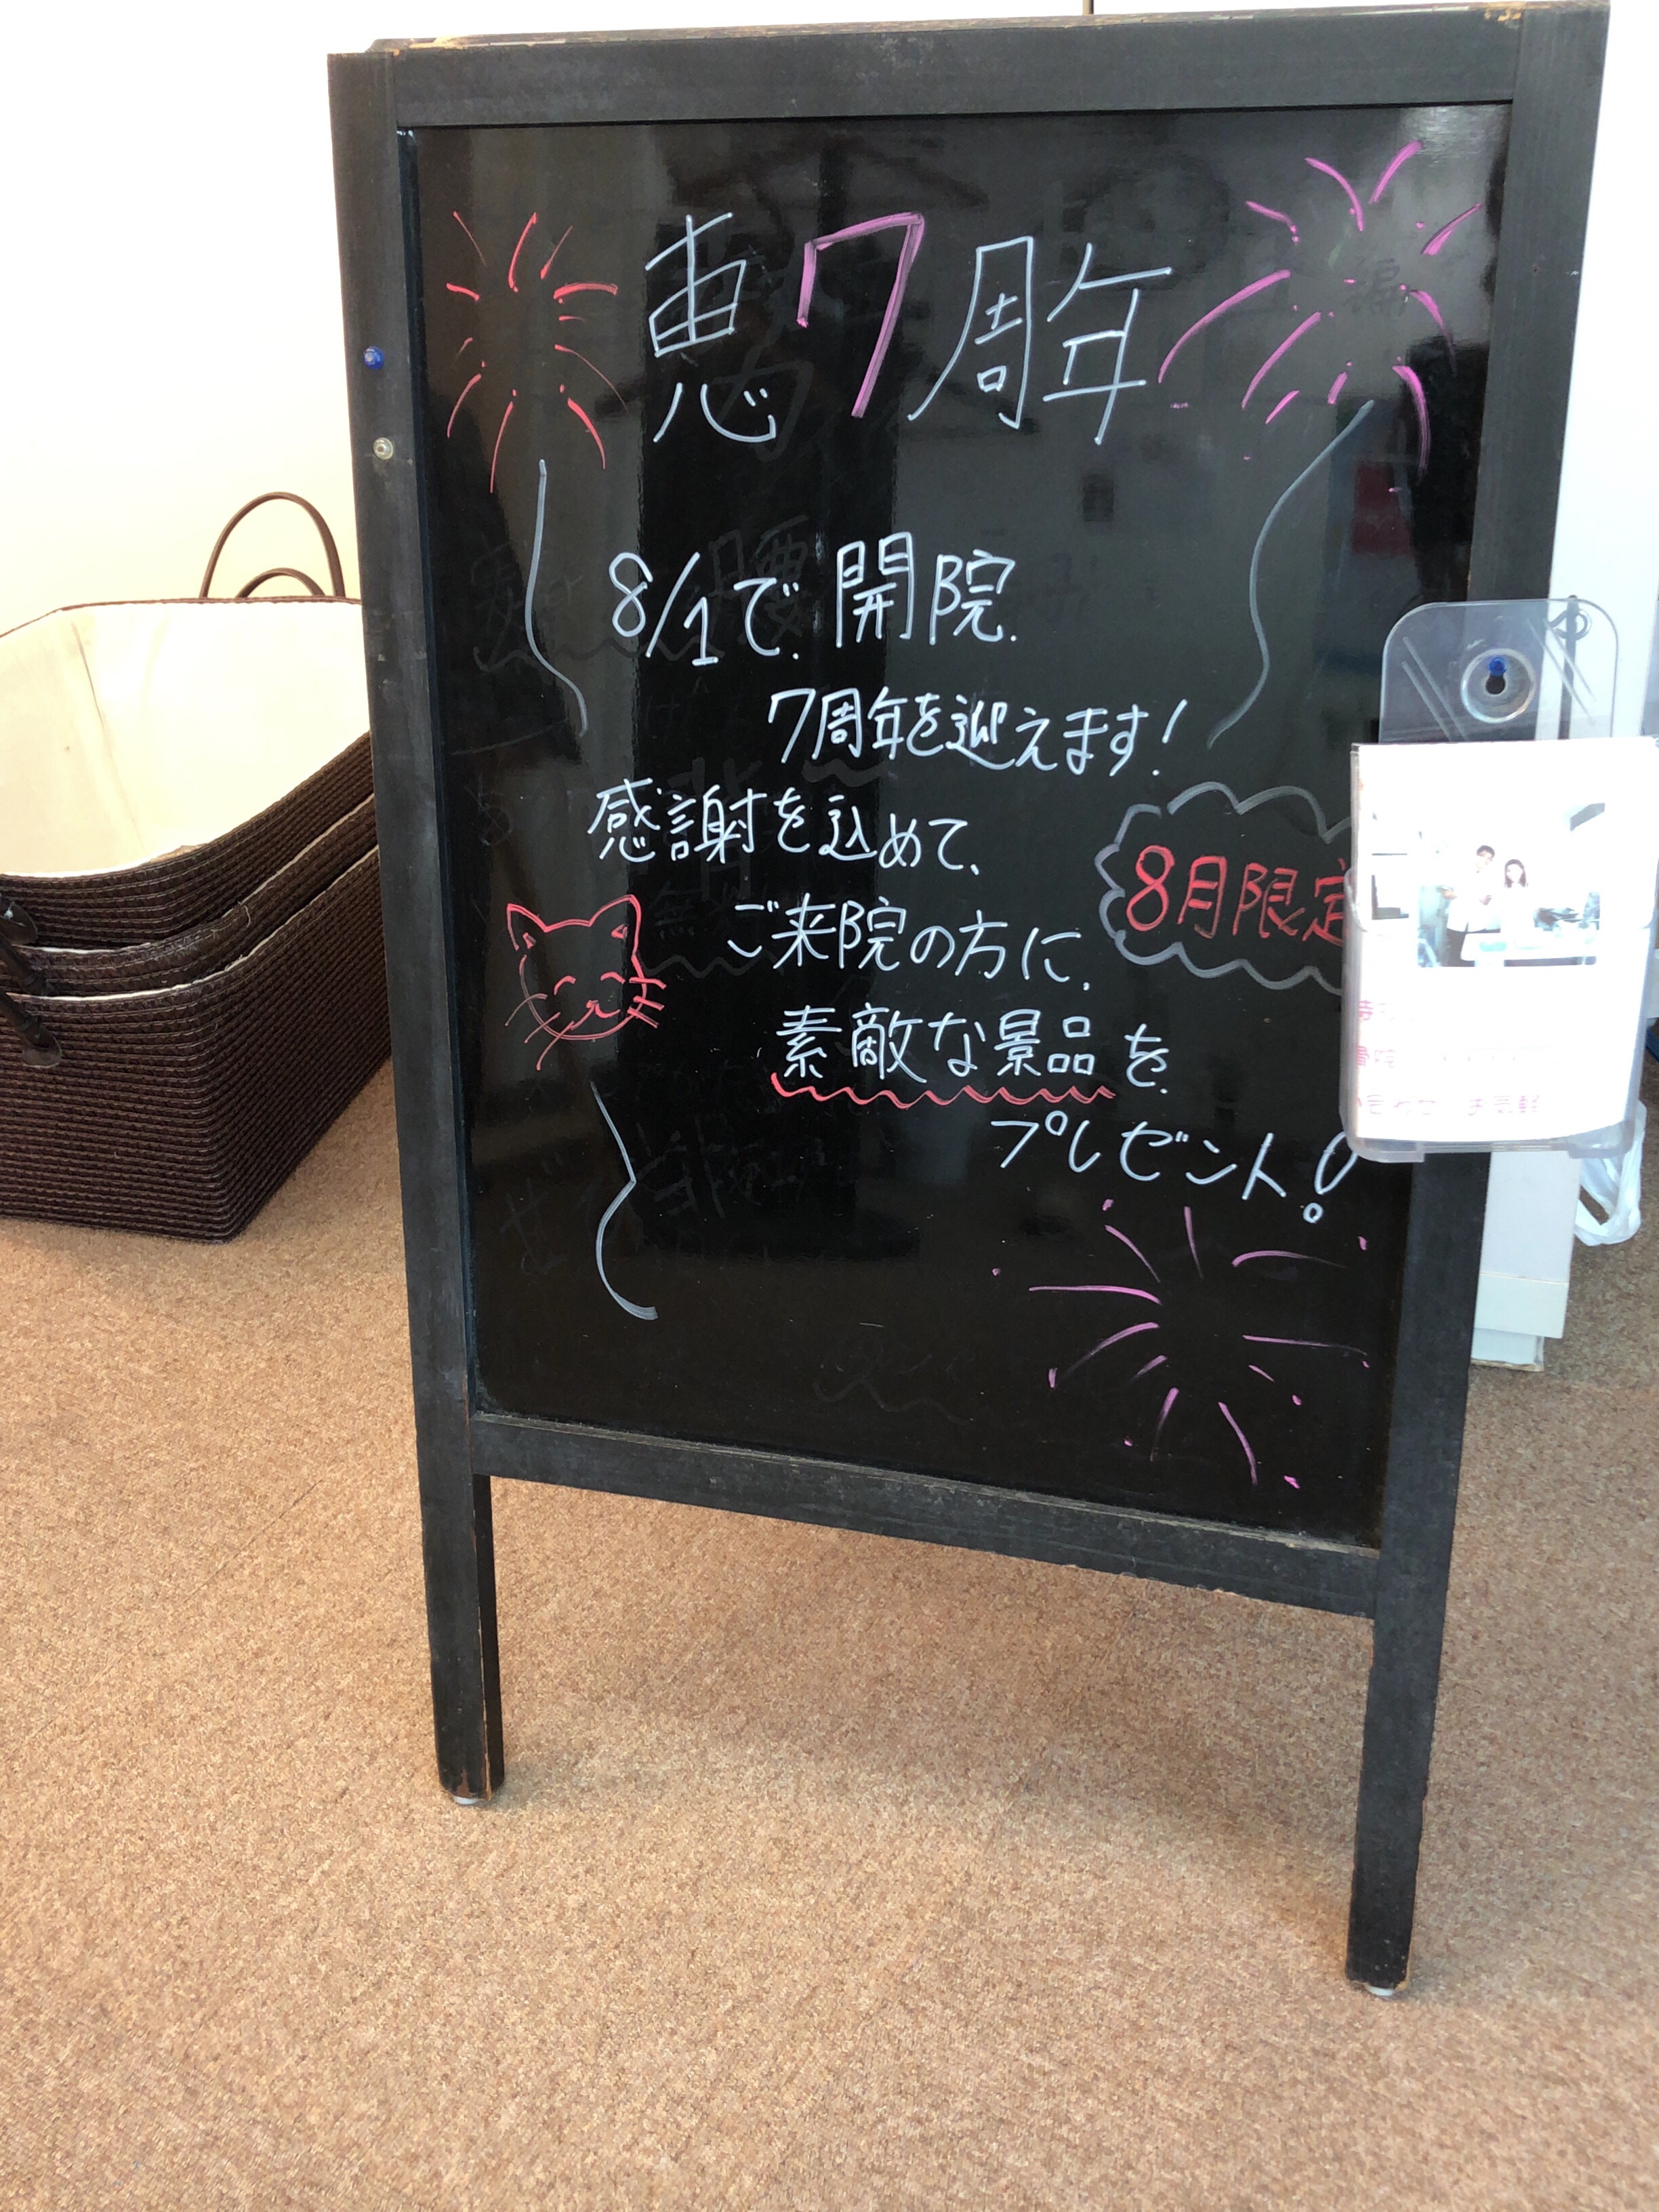 恵7周年
8/1で開院
7周年を迎えます!
感謝を込めて、
8月限定
ご来院の方に
素敵な景品を
プレゼント!